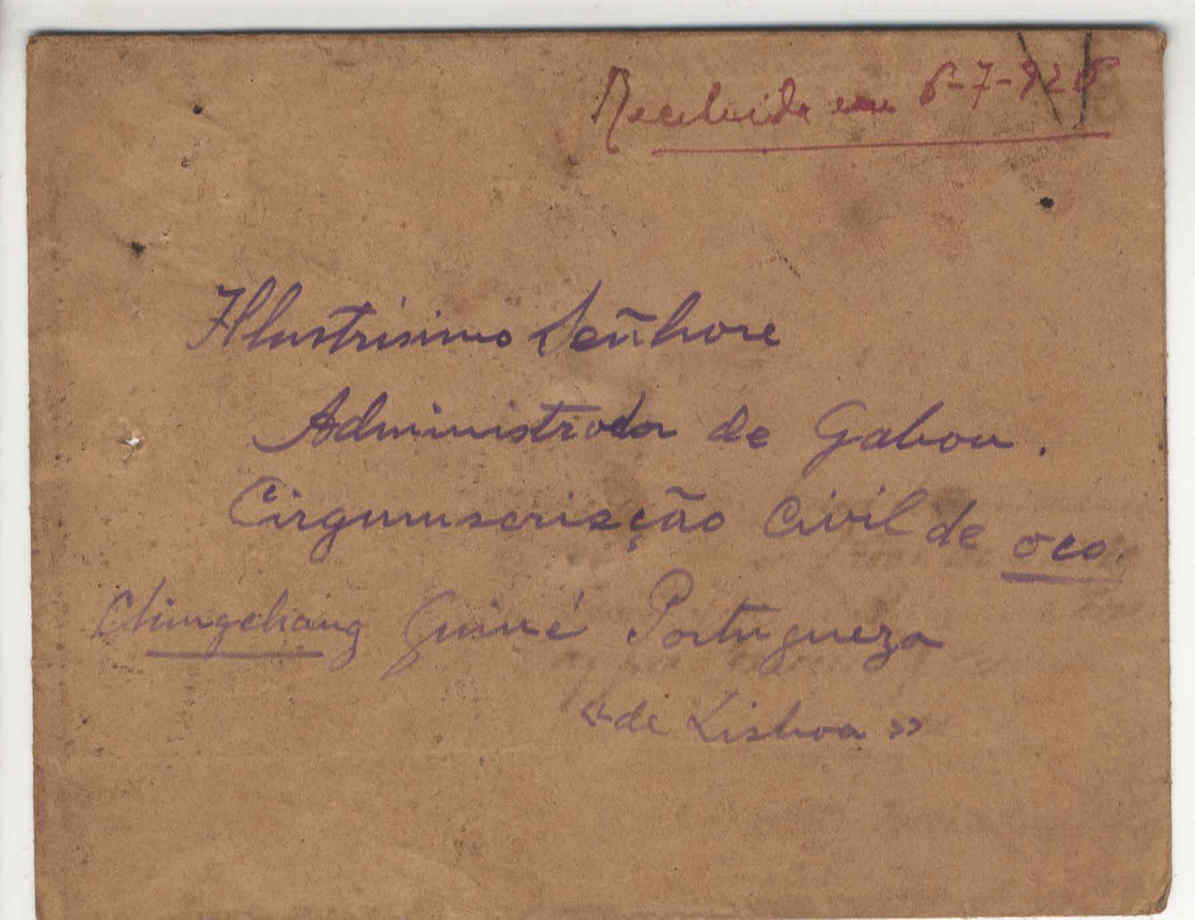 Recebida em 6-7-928
Illustrisimo Señhore
Administrador de Gabou.
Cirgumuscrisção Civil de oco.
Chingchang Guiné Portugueza
«de Lisboa»